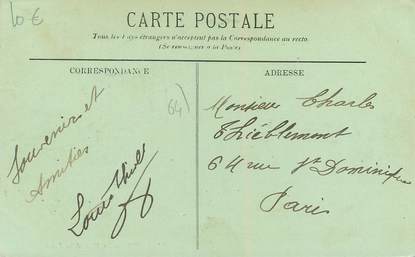 10 €
CARTE POSTALE
Tous les Pays étrangers n'acceptent pas la Correspondance au recto.
(Se renseigner à la Poste)
CORRESPONDANCE
ADRESSE
Souvenirs et
Amitiés
Louis
64)
Monsieur Charles
Thiéblemont
64 rue St Dominique
Paris